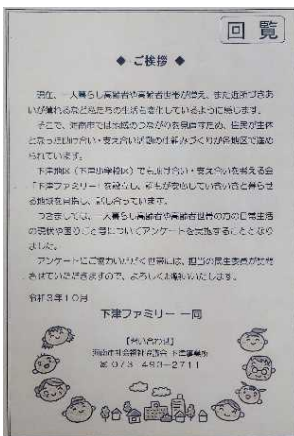 回覧
◆ ご挨拶 ◆
現在、一人暮らし高齢者や高齢者世帯が増え、また近所づきあ
いが薄れるなど私たちの生活も変化しているように感じます。
そこで、海南市では地域のつながりを見直すため、住民が主体
となった助け合い・支え合い活動の仕組みづくりが各地区で進め
られています。
下津地区（下津小学校区）でも助け合い・支え合いを考える会
「下津ファミリー」を設立し、誰もが安心していきいきと暮らせ
る地域を目指し、話し合っています。
つきましては、一人暮らし高齢者や高齢者世帯の方の日常生活
の現状や困りごと等についてアンケートを実施することとなり
ました。
アンケートにご協力いただく世帯には、担当の民生委員が訪問
させていただきますので、よろしくお願いいたします。
令和3年10月
下津ファミリー 一同
【問い合わせ】
海南市社会福祉協議会 下津事務所
☎ 073-493-2711